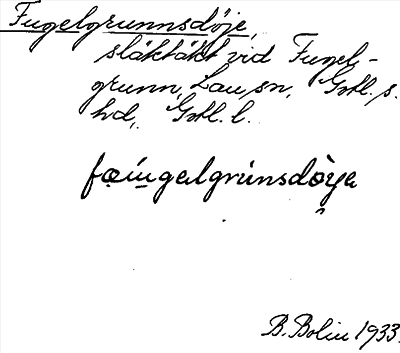 Fugelgrunnsdöje,
släktäkt vid Fugel-
grunn, Lau sn, Gotl. s.
hd, Gotl. l.
fœíṷgelgrúnsdöyę
B. Bolin 1933.